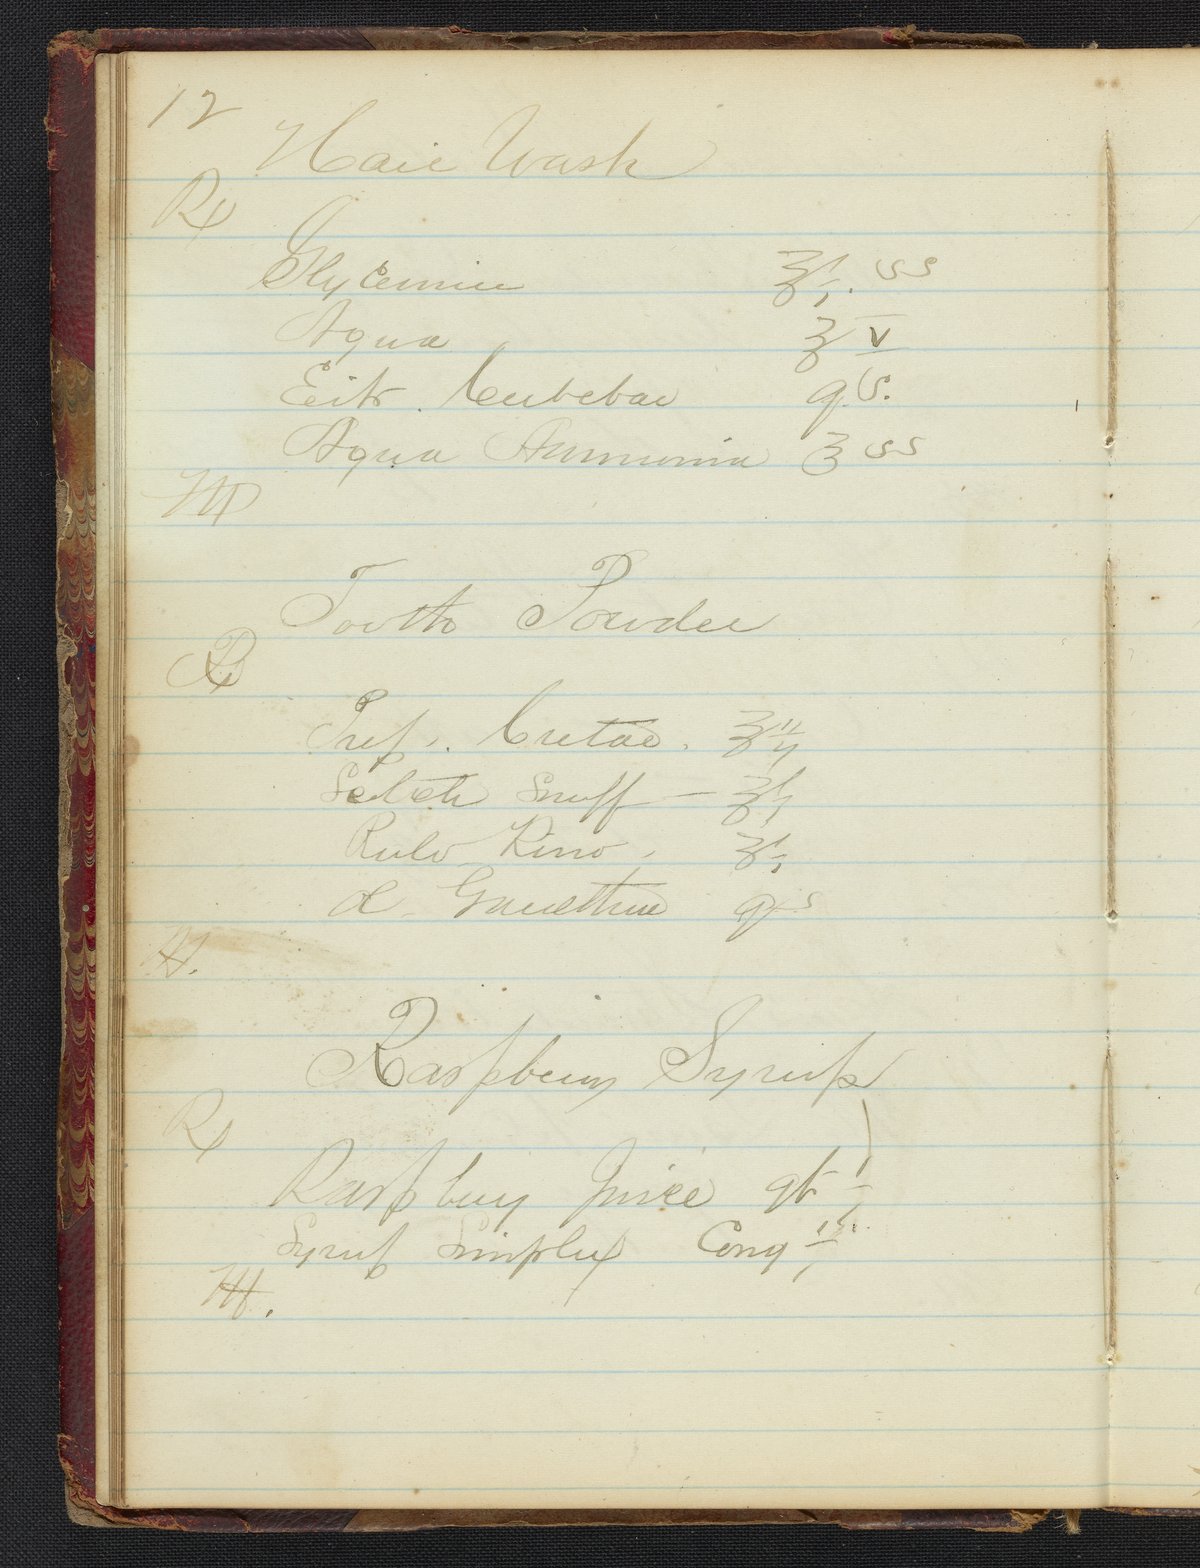 12
Hair Wash
Rx
Glycerine ℥i. ss
Aqua ℥ V
Ext. Cubebae q.s.
Aqua Ammonia ℥ ss
M
Tooth Powder
Rx
Prep. Cretae. ℥ij
Scotch Snuff — ℥i
Pulv Kino. ℥i
Ol. Gaultheria qs
M.
Raspberry Syrup
Rx
Raspberry Juice qt i
Syrup Simplex Cong
M.